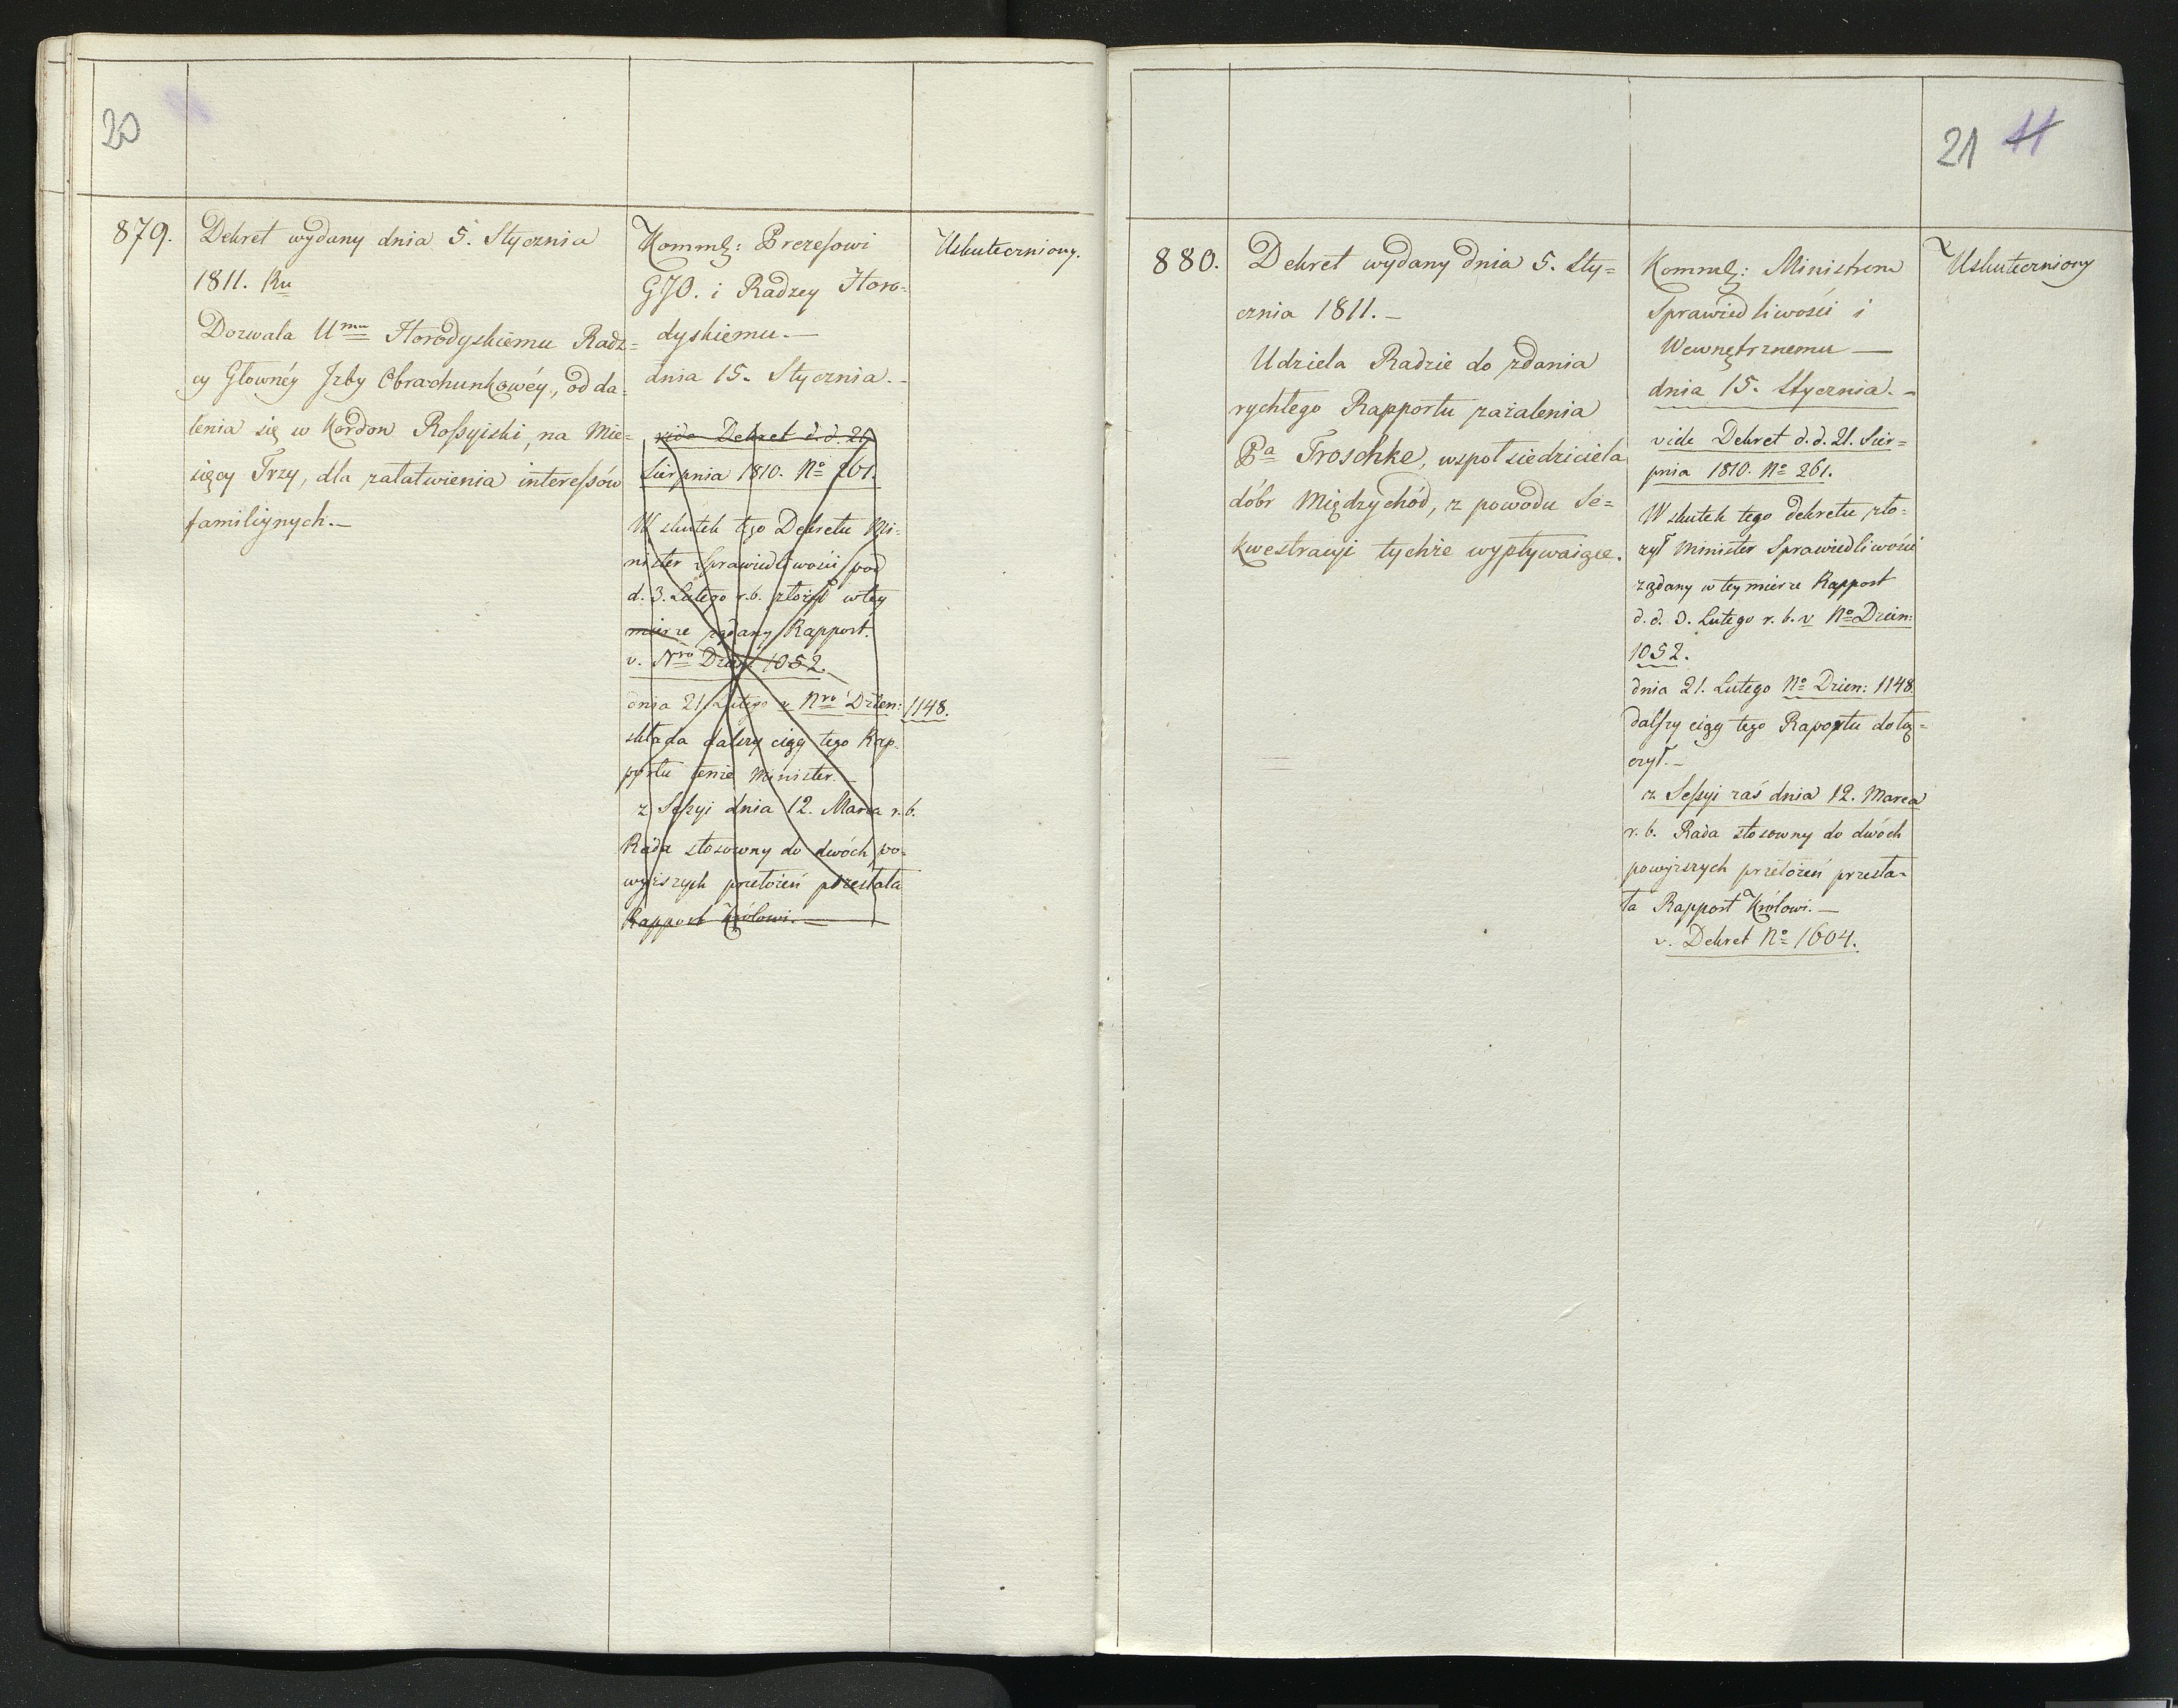 20
879.
Dekret wydany dnia 5. Stycznia
1811. Ru
Dozwala Umu Horodyskiemu Radz=
cy Głownéy Jzby Obrachunkowéy, odda=
lenia się w Kordon Rossyiski, na Mie=
sięcy Trzy, dla załatwienia interessów
familiynych.—
Kommg: Prezesowi
GJO. i Radzcy Horo=
dyskiemu.—
dnia 15. Stycznia.—
vide Dekret d.d. 21
Sierpnia 1810. No 261.
W skutek tego Dekretu Mi=
nister Sprawiedliwości pod
d. 3. Lutego r.b. złożył w tey
mierze żądany Rapport.
v. Nro Dzien 1052.
dnia 21 Lutego v Nro Dzien: 1148.
składa dalszy ciąg tego Rap=
portu tenże Minister.—
z Sessyi dnia 12. Marca r.b.
Rada stosowny do dwóch po=
wyższych przełożeń przesłała
Rapport Królowi.—
Uskuteczniony.
21 11
880.
Dekret wydany dnia 5. Sty=
cznia 1811.—
Udziela Radzie do zdania
rychłego Rapportu zażalenia
Pa Troschke, wspołsiedziciela
dóbr Międzychód, z powodu Se=
kwestracyi tychże wypływaiące.
Kommg: Ministrom
Sprawiedliwości i
Wewnętrznemu—
dnia 15. Stycznia.—
vide Dekret d.d. 21. Sier=
pnia 1810. No 261.
W skutek tego dekretu zło=
żył Minister Sprawiedliwości
żądany w tey mierze Rapport
d.d. 3. Lutego r.b. v No Dzien:
1052.
dnia 21. Lutego No Dzien: 1148
dalszy ciąg tego Raportu dołą=
czył.—
z Sessyi zaś dnia 12. Marca
r.b. Rada stosowny do dwóch
powyższych przełożeń przesła=
ła Rapport Królowi.—
v. Dekret No 1604.
Uskuteczniony